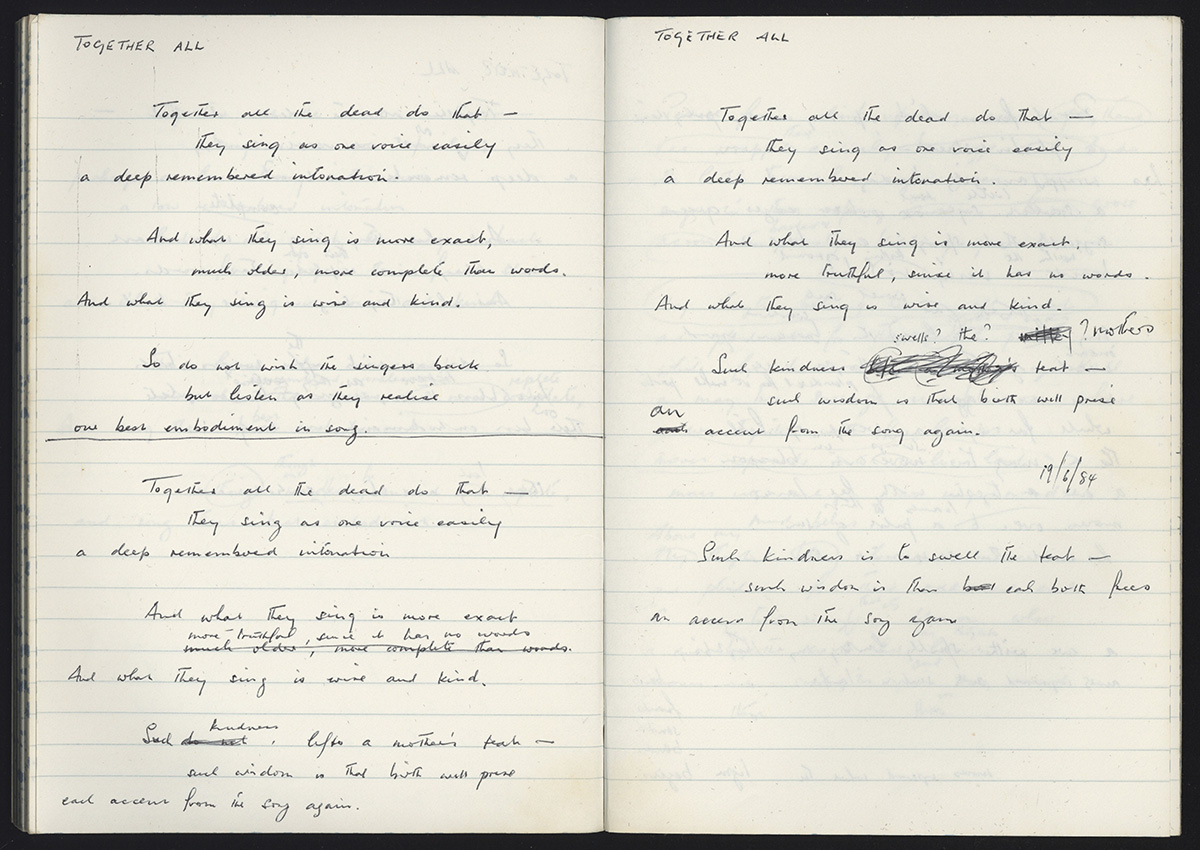 TOGETHER ALL
Together all the dead do that —
they sing as one voice easily
a deep remembered intonation.
And what they sing is more exact,
much older, more complete than words.
And what they sing is wise and kind.
So do not wish the singers back
but listen as they realise
our best embodiment in song.
Together all the dead do that —
they sing as one voice easily
a deep remembered intonation
And what they sing is more exact
more truthful, since it has no words
much older, more complete than words.
And what they sing is wise and kind.
kindness
Such do not, lifts a mother's teat —
such wisdom is that birth will prise
each accent from the song again.
TOGETHER ALL
Together all the dead do that —
they sing as one voice easily
a deep remembered intonation.
And what they sing is more exact,
more truthful, since it has no words.
And what they sing is wise and kind.
swells? the? ? mothers
Such kindness teat —
such wisdom is that birth will prise
an
each accent from the song again.
19/6/84
Such kindness is to swell the teat —
such wisdom is that each birth frees
an accent from the song again